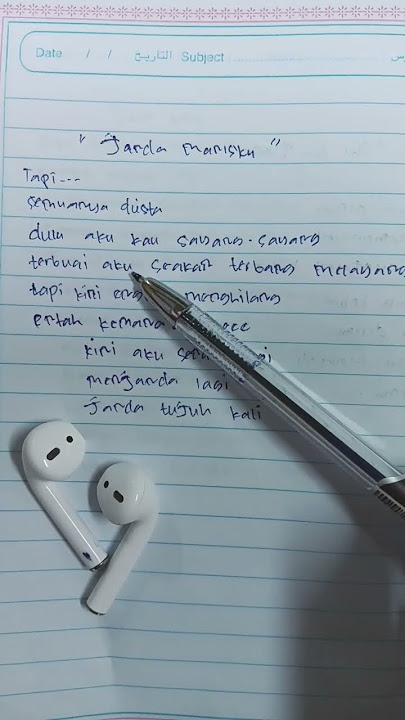 Date / / التاريخ Subject
" Janda manisku "
Tapi---
semuanya dusta
dulu aku kau sayang-sayang
terbuai aku seakan terbang melayang
tapi kini menghilang
entah kemana
kini aku
menjanda lagi
Janda tujuh kali